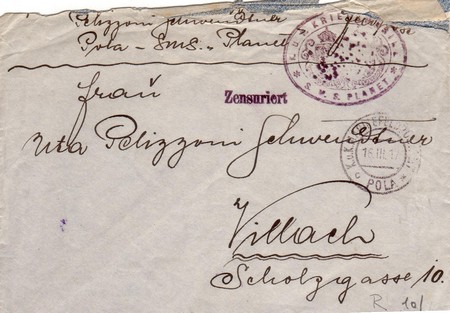 Pelizzoni Schwendtner
Pola - SMS. "Planet
K.U.K. KRIEGSMARINE
S. M. S. PLANET
Frau
Zensuriert
Uta Pelizzoni Schwendtner
K.u.K.
16.III.17
POLA
Villach
Scholzgasse 10.
R 10/